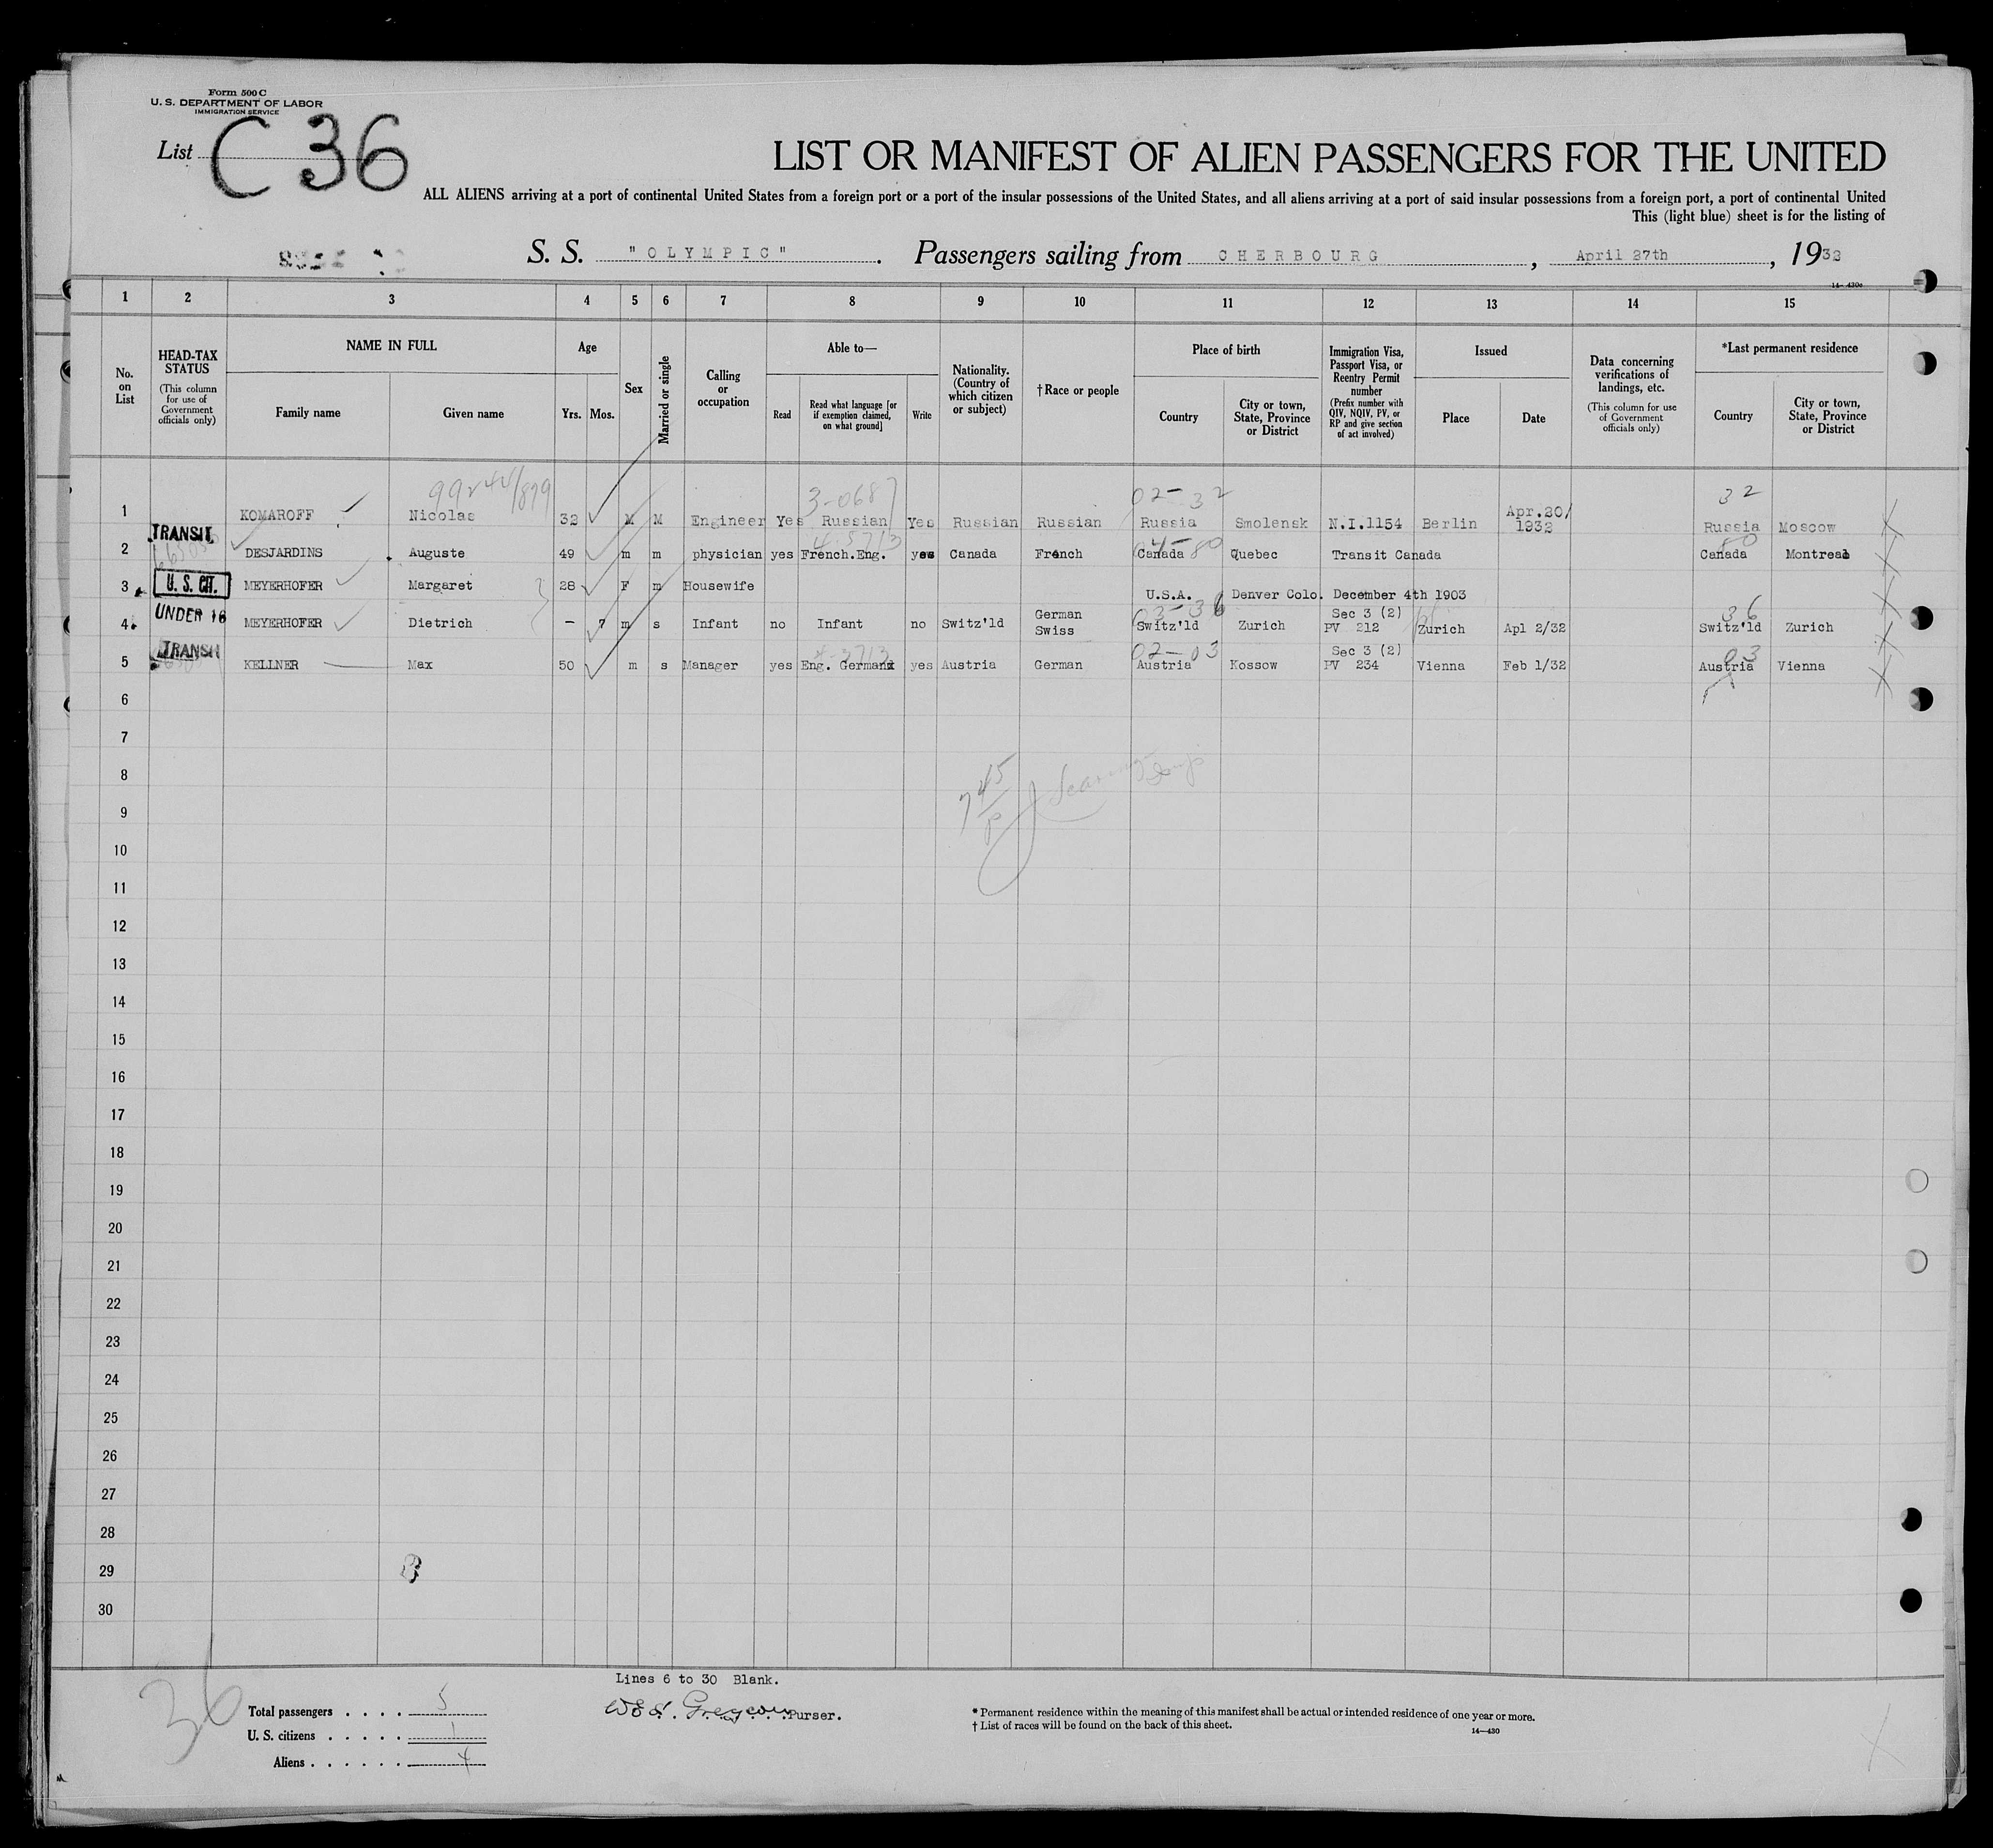 Form 500 C
U. S. DEPARTMENT OF LABOR
IMMIGRATION SERVICE
List C 36
LIST OR MANIFEST OF ALIEN PASSENGERS FOR THE UNITED
ALL ALIENS arriving at a port of continental United States from a foreign port or a port of the insular possessions of the United States, and all aliens arriving at a port of said insular possessions from a foreign port, a port of continental United
This (light blue) sheet is for the listing of
S. S. "OLYMPIC". Passengers sailing from CHERBOURG, April 27th, 1932
14-430c
1 2 3 4 5 6 7 8 9 10 11 12 13 14 15
No. on List
HEAD-TAX STATUS
(This column for use of Government officials only)
NAME IN FULL
Family name
Given name
Age
Yrs. Mos.
Sex
Married or single
Calling or occupation
Able to—
Read
Read what language [or if exemption claimed, on what ground]
Write
Nationality. (Country of which citizen or subject)
† Race or people
Place of birth
Country
City or town, State, Province or District
Immigration Visa, Passport Visa, or Reentry Permit number
(Prefix number with QIV, NQIV, PV, or RP and give section of act involved)
Issued
Place
Date
Data concerning verifications of landings, etc.
(This column for use of Government officials only)
*Last permanent residence
Country
City or town, State, Province or District
3-0687 02-32 32
1 KOMAROFF Nicolas 32 M M Engineer Yes Russian Yes Russian Russian Russia Smolensk N.I.1154 Berlin Apr.20/1932 Russia Moscow
TRANSIT
2 DESJARDINS Auguste 49 m m physician yes French.Eng. yes Canada French Canada Quebec Transit Canada Canada Montreal
3 U. S. CIT. MEYERHOFER Margaret 28 F m Housewife U.S.A. Denver Colo. December 4th 1903
4 UNDER 16 MEYERHOFER Dietrich - 7 m s Infant no Infant no Switz'ld German Swiss Switz'ld Zurich Sec 3 (2) PV 212 Zurich Apl 2/32 Switz'ld Zurich
TRANSIT
02-03 03
5 KELLNER Max 50 m s Manager yes Eng. German yes Austria German Austria Kossow Sec 3 (2) PV 234 Vienna Feb 1/32 Austria Vienna
6
7
8
9
10
11
12
13
14
15
16
17
18
19
20
21
22
23
24
25
26
27
28
29
30
Lines 6 to 30 Blank.
36
Total passengers . . . . 5
U. S. citizens . . . . . 1
Aliens . . . . . . 4
Purser.
* Permanent residence within the meaning of this manifest shall be actual or intended residence of one year or more.
† List of races will be found on the back of this sheet.
14—430